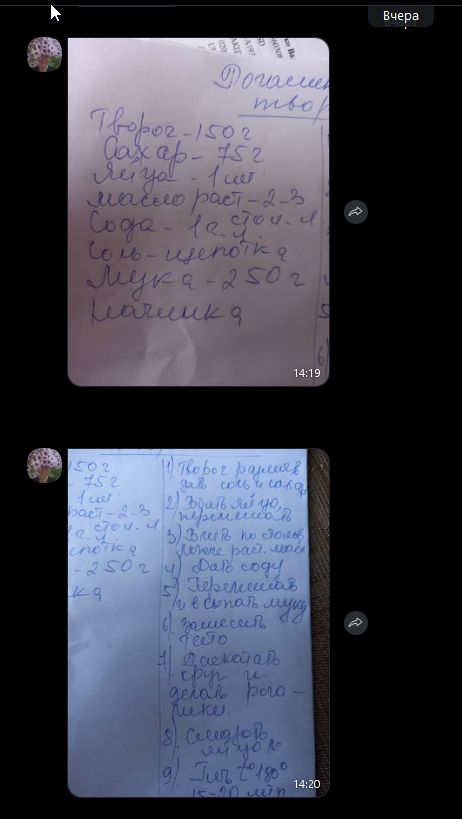 Вчера
твор
Творог - 150 г
Сахар - 75 г
Яйца - 1 шт.
масло раст - 2-3
стол. л.
Сода - 1 ч.л.
Соль - щепотка
Мука - 250 г
начинка
5
6)
14:19
150 г
- 75 г
1 шт.
раст - 2-3
стол. л
щепотка
- 250 г
ка
1) Творог размяв
дать соль и сахар
2) Вбить яйцо,
перемешать
3) Влить по столов
ложке раст. масл
4) Дать соду
5) Перемешать
и всыпать муку
6) Замесить
тесто.
7) Раскатать
круг и
делать рога-
лики.
8. Смазать
яйцом
9) Печь t° 180°
15-20 мин
14:20